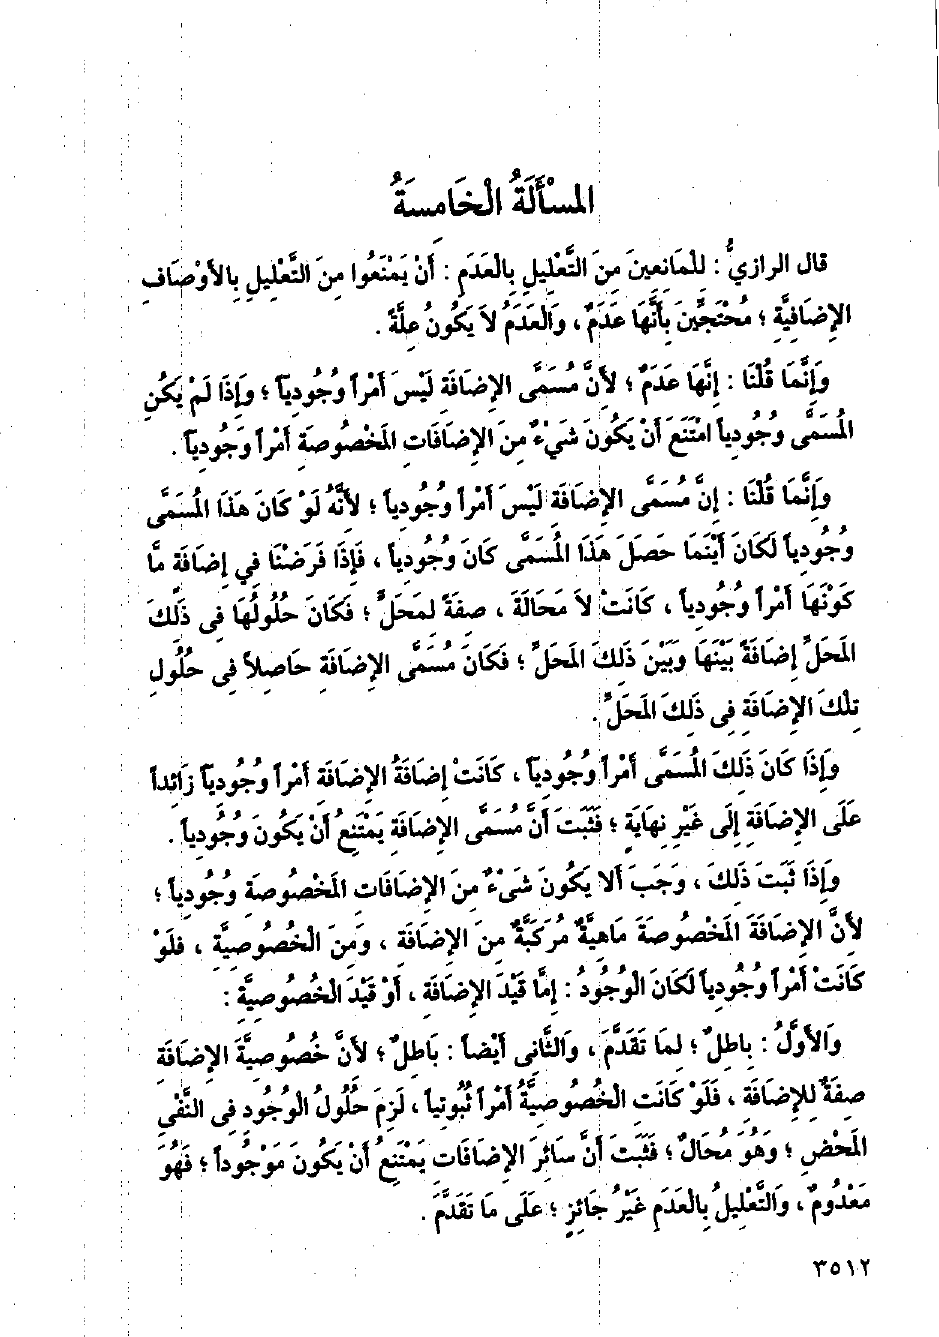 المسْأَلَةُ الْخَامِسَةُ
قال الرازيُّ : لِلْمَانِعِينَ مِنَ التَّعْلِيلِ بِالْعَدَمِ : أَنْ يَمْنَعُوا مِنَ التَّعْلِيلِ بِالأَوْصَافِ
الإِضَافِيَّةِ ؛ مُحْتَجِّينَ بِأَنَّهَا عَدَمٌ ، وَالْعَدَمُ لاَ يَكُونُ عِلَّةً .
وَإِنَّمَا قُلْنَا : إِنَّهَا عَدَمٌ ؛ لأَنَّ مُسَمَّى الإِضَافَةِ لَيْسَ أَمْراً وُجُودِيّاً ؛ وَإِذَا لَمْ يَكُنِ
المُسَمَّى وُجُودِياً امْتَنَعَ أَنْ يَكُونَ شَيْءٌ مِنَ الإِضَافَاتِ المَخْصُوصَةِ أَمْراً وَجُودِيّاً .
وَإِنَّمَا قُلْنَا : إِنَّ مُسَمَّى الإِضَافَةِ لَيْسَ أَمْراً وُجُودِياً ؛ لأَنَّهُ لَوْ كَانَ هَذَا المُسَمَّى
وُجُودِياً لَكَانَ أَيْنَمَا حَصَلَ هَذَا المُسَمَّى كَانَ وُجُودِياً ، فَإِذَا فَرَضْنَا فِي إِضَافَةٍ مَّا
كَوْنَهَا أَمْراً وُجُودِياً ، كَانَتْ لاَ مَحَالَةَ ، صِفَةً لِمَحَلٍّ ؛ فَكَانَ حُلُولُهَا فِى ذَلِكَ
المَحَلِّ إِضَافَةً بَيْنَهَا وَبَيْنَ ذَلِكَ المَحَلِّ ؛ فَكَانَ مُسَمَّى الإِضَافَةِ حَاصِلاً فِى حُلُولِ
تِلْكَ الإِضَافَةِ فِى ذَلِكَ المَحَلِّ .
وَإِذَا كَانَ ذَلِكَ المُسَمَّى أَمْراً وُجُودِيّاً ، كَانَتْ إِضَافَةُ الإِضَافَةِ أَمْراً وُجُودِيّاً زَائِداً
عَلَى الإِضَافَةِ إِلَى غَيْرِ نِهَايَةٍ ؛ فَثَبَتَ أَنَّ مُسَمَّى الإِضَافَةِ يَمْتَنِعُ أَنْ يَكُونَ وُجُودِياً .
وَإِذَا ثَبَتَ ذَلِكَ ، وَجَبَ أَلا يَكُونَ شَىْءٌ مِنَ الإِضَافَاتِ المَخْصُوصَةِ وُجُودِياً ؛
لأَنَّ الإِضَافَةَ المَخْصُوصَةَ مَاهِيَّةٌ مُرَكَبَّةٌ مِنَ الإِضَافَةِ ، وَمِنَ الْخُصُوصِيَّةِ ، فَلَوْ
كَانَتْ أَمْراً وُجُودِياً لَكَانَ الْوُجُودُ : إِمَّا قَيْدَ الإِضَافَةِ ، أَوْ قَيْدَ الْخُصُوصِيَّةِ :
وَالأَوَّلُ : بِاطِلٌ ؛ لِمَا تَقَدَّمَ ، وَالثَّانِى أَيْضاً : بَاطِلٌ ؛ لأَنَّ خُصُوصِيَّةَ الإِضَافَةِ
صِفَةٌ لِلإِضَافَةِ ، فَلَوْ كَانَتِ الْخُصُوصِيَّةُ أَمْراً ثُبُوتِياً ، لَزِمَ حُلُولُ الْوُجُودِ فِى النَّفْىِ
المَحْضِ ؛ وَهُوَ مُحَالٌ ؛ فَثَبَتَ أَنَّ سَائِرَ الإِضَافَاتِ يَمْتَنِعُ أَنْ يَكُونَ مَوْجُوداً ؛ فَهُوَ
مَعْدُومٌ ، وَالتَّعْلِيلُ بِالْعَدَمِ غَيْرُ جَائِزٍ ؛ عَلَى مَا تَقَدَّمَ .
٣٥١٢